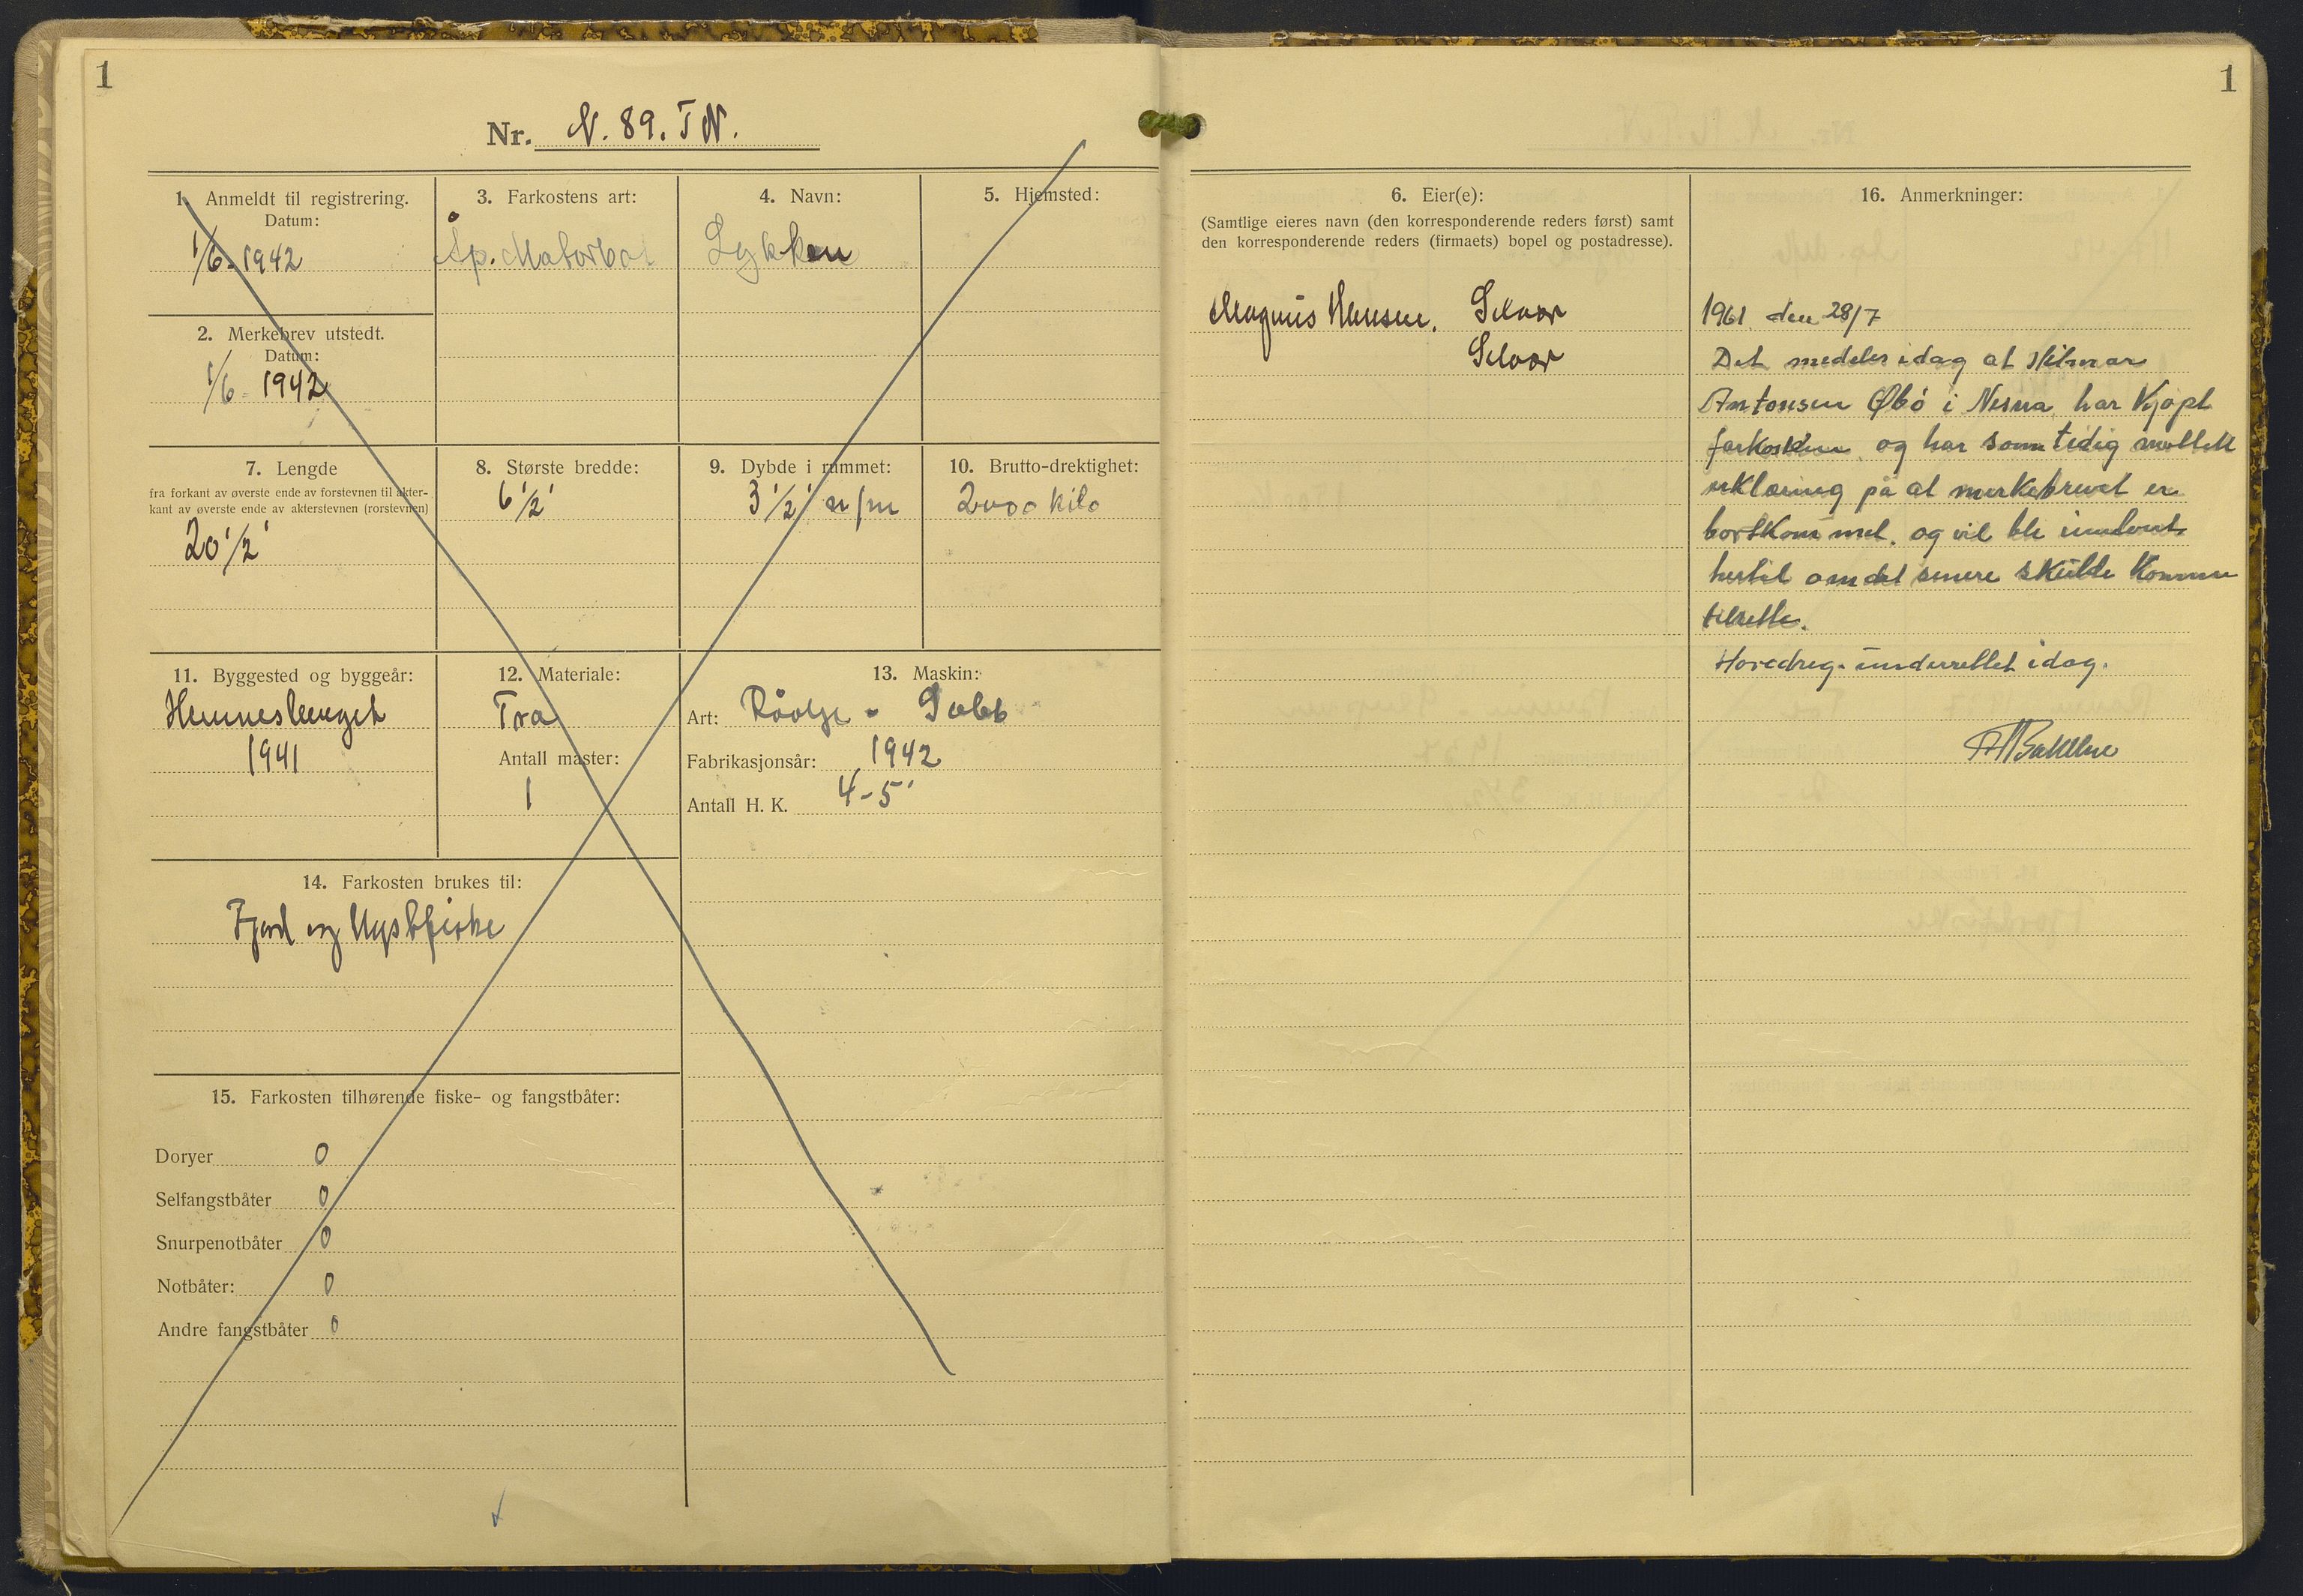 1
Nr. N. 89. TN.
1. Anmeldt til registrering.
Datum:
1/6-1942
2. Merkebrev utstedt.
Datum:
1/6-1942
3. Farkostens art:
Åp. Motorbåt
4. Navn:
Lykken
5. Hjemsted:
7. Lengde
fra forkant av øverste ende av forstevnen til akter-
kant av øverste ende av akterstevnen (rorstevnen)
20 1/2'
8. Største bredde:
6 1/2'
9. Dybde i rummet:
3 1/2'
10. Brutto-drektighet:
2000 kilo
11. Byggested og byggeår:
Hemnesberget
1941
12. Materiale:
Tra
Antall master:
1
13. Maskin:
Art: Råolje - Sabb
Fabrikasjonsår: 1942
Antall H. K. 4-5
14. Farkosten brukes til:
Fjord og Kystfiske
15. Farkosten tilhørende fiske- og fangstbåter:
Doryer 0
Selfangstbåter 0
Snurpenotbåter 0
Notbåter: 0
Andre fangstbåter 0
1
6. Eier(e):
(Samtlige eieres navn (den korresponderende reders først) samt
den korresponderende reders (firmaets) bopel og postadresse).
Magnus Hansen. Selvær
Selvær
16. Anmerkninger:
1961 den 28/7
Det medeles idag at Hilmar
Antonsen Øbö i Nesna har Kjøpt
farkosten og har samtidig
erklæring på at merkebrevet er
bortkommet. og vil bli innlevert
hertil om det senere skulde komme
tilrette.
Hovedreg. underrettet idag.